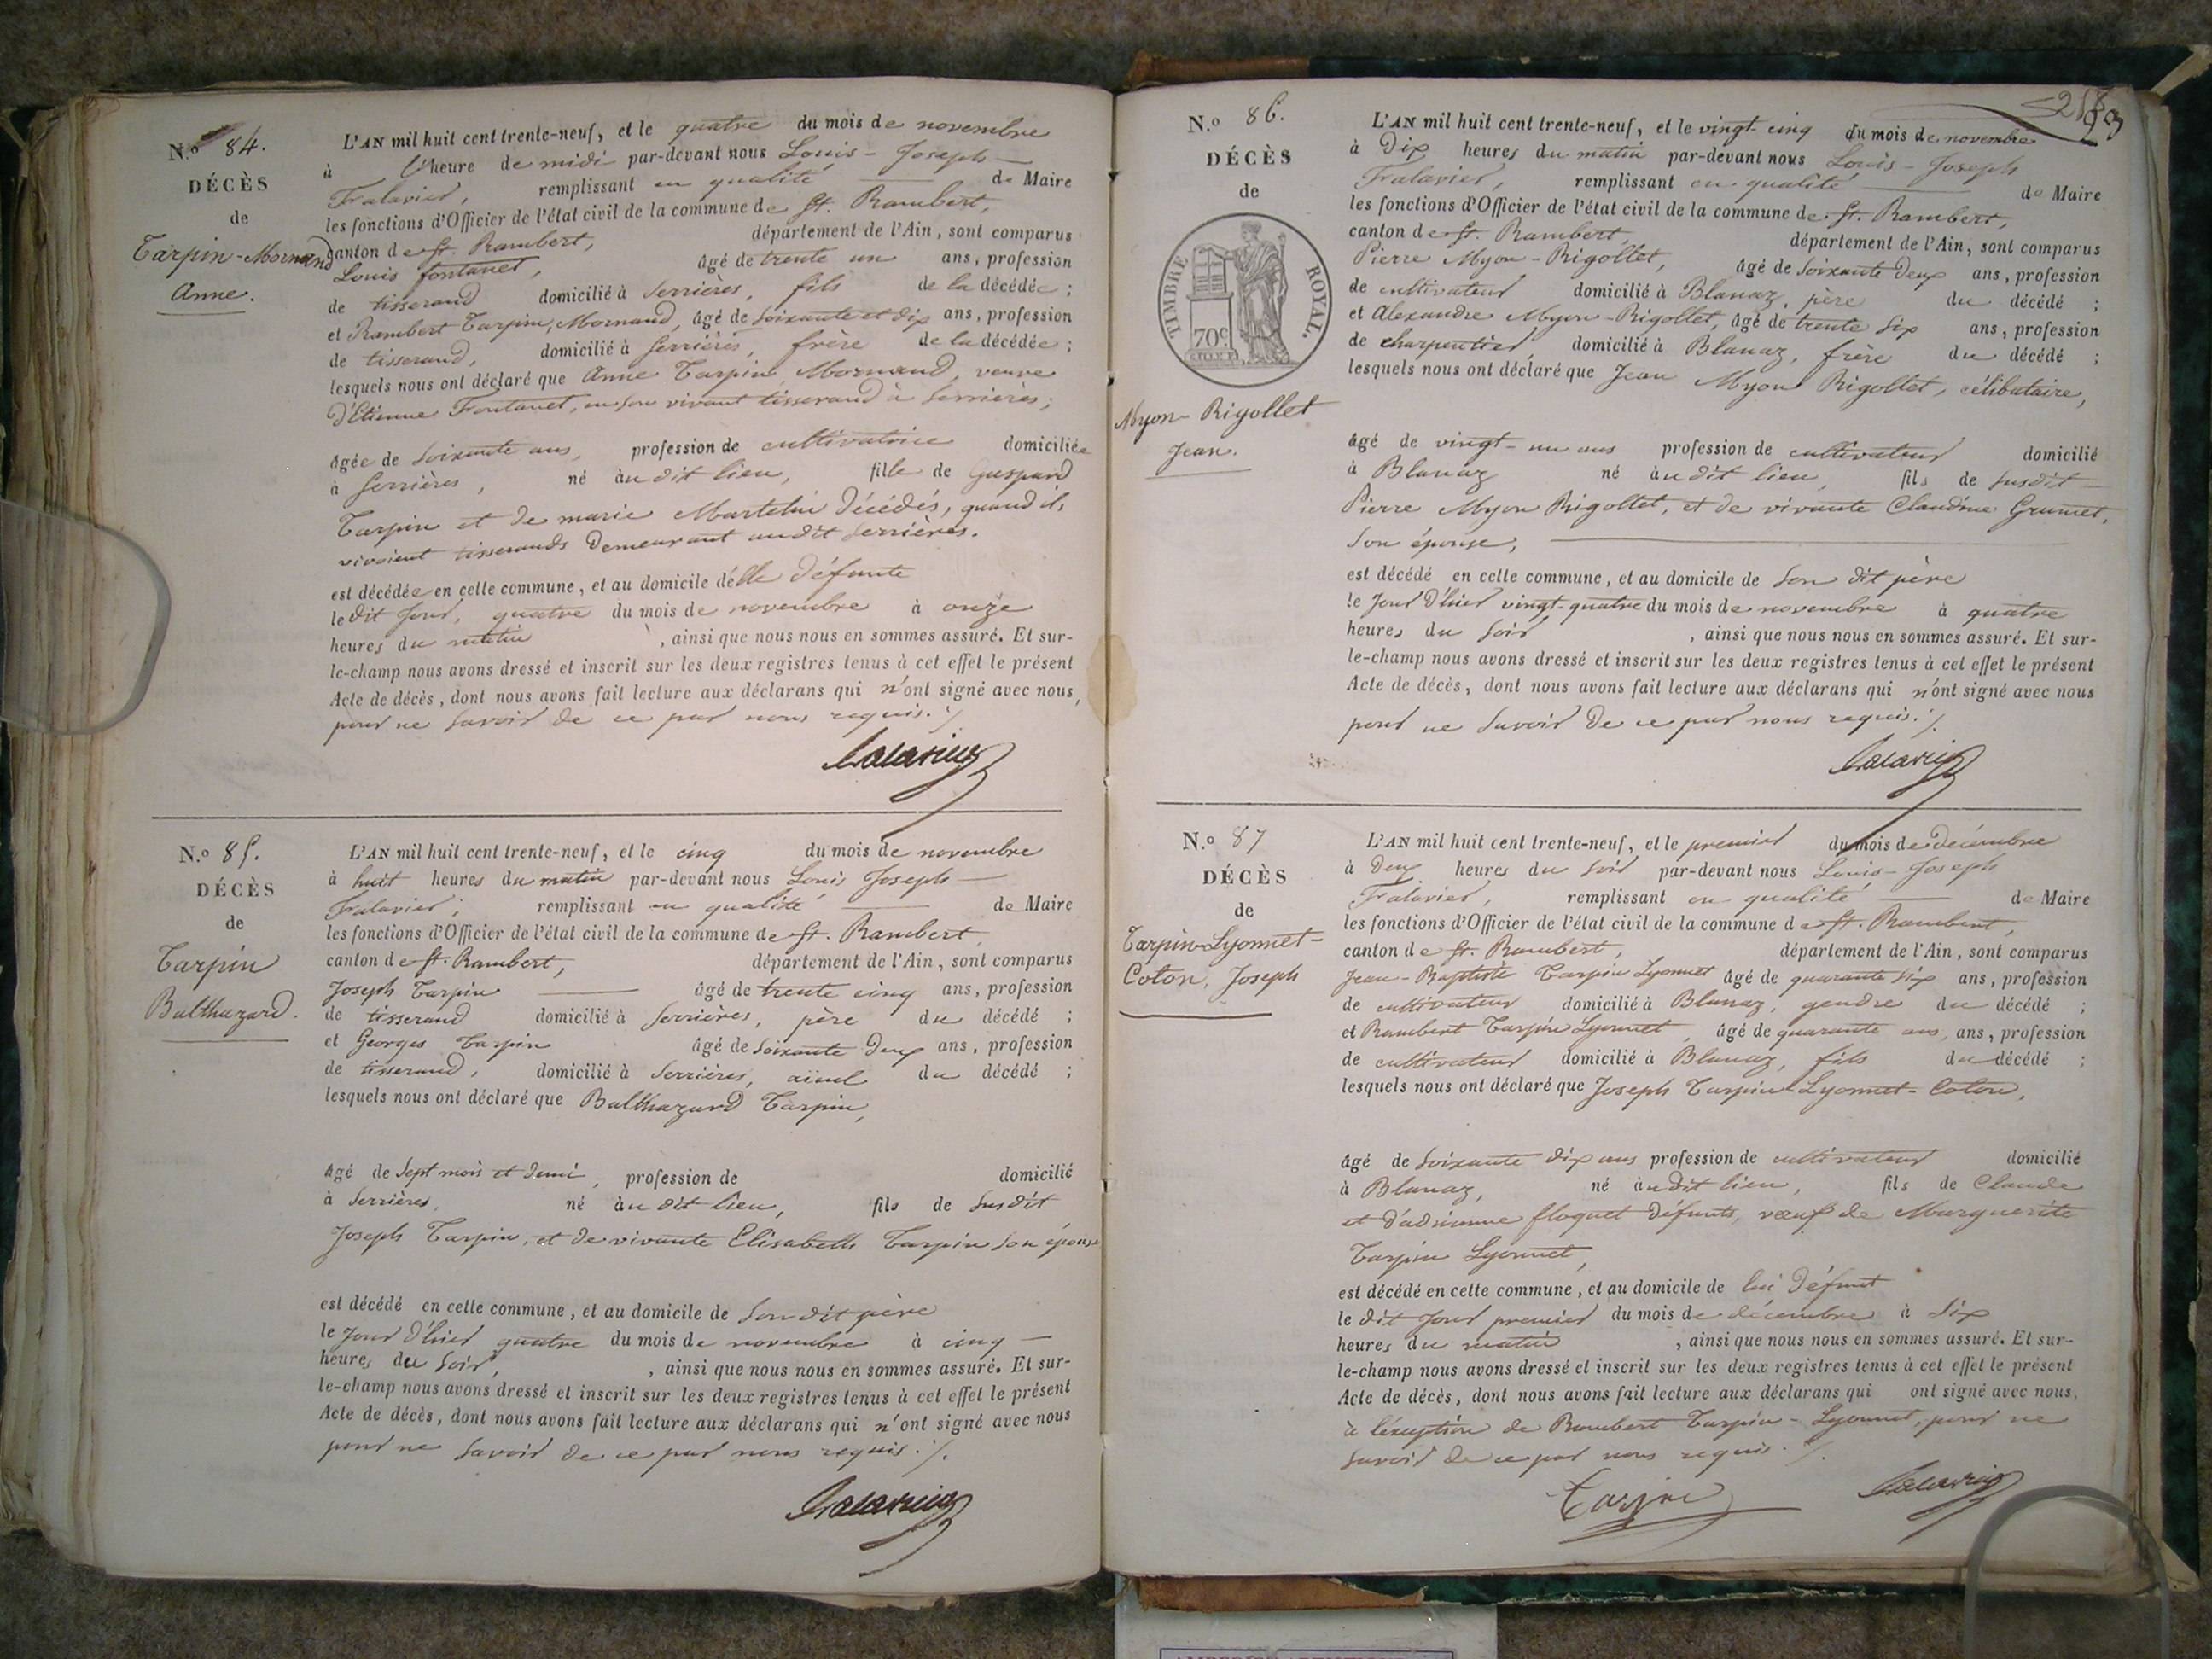 N.o 84.
DÉCÈS
de
Tarpin-Mornand
Anne.
L'AN mil huit cent trente-neuf, et le quatre du mois de novembre
à l'heure de midi par-devant nous Louis-Joseph
Falavier, remplissant en qualité de Maire
les fonctions d'Officier de l'état civil de la commune de St. Rambert,
canton de St. Rambert, département de l'Ain, sont comparus
Louis fontanet, âgé de trente un ans, profession
de tisserand domicilié à Serrières, fils de la décédée ;
et Rambert Tarpin, Mornand, âgé de soixante et dix ans, profession
de tisserand, domicilié à Serrières, frère de la décédée ;
lesquels nous ont déclaré que Anne Tarpin Mornand, veuve
d'Etienne Fontanet, en son vivant tisserand à Serrières ;
âgée de soixante ans, profession de cultivatrice domiciliée
à Serrières, né audit lieu, fille de Gaspard
Tarpin et de marie Martelin décédés, quand ils
vivoient tisserands demeurant audit Serrières.
est décédée en cette commune, et au domicile d'elle défunte
le dit jour, quatre du mois de novembre à onze
heures du matin, ainsi que nous nous en sommes assuré. Et sur-
le-champ nous avons dressé et inscrit sur les deux registres tenus à cet effet le présent
Acte de décès, dont nous avons fait lecture aux déclarans qui n'ont signé avec nous,
pour ne savoir de ce par nous requis. /.
N.o 85.
DÉCÈS
de
Tarpin
Balthazard.
L'AN mil huit cent trente-neuf, et le cinq du mois de novembre
à huit heures du matin par-devant nous Louis Joseph
Falavier, remplissant en qualité de Maire
les fonctions d'Officier de l'état civil de la commune de St. Rambert
canton de St. Rambert, département de l'Ain, sont comparus
Joseph Tarpin âgé de trente cinq ans, profession
de tisserand domicilié à Serrières, père du décédé ;
et Georges Tarpin âgé de soixante deux ans, profession
de tisserand, domicilié à Serrières, aïeul du décédé ;
lesquels nous ont déclaré que Balthazard Tarpin,
âgé de sept mois et demi, profession de domicilié
à Serrières, né audit lieu, fils de susdit
Joseph Tarpin, et de vivante Elisabeth Tarpin son épouse
est décédé en cette commune, et au domicile de son dit père
le jour d'hier quatre du mois de novembre à cinq
heures du soir, ainsi que nous nous en sommes assuré. Et sur-
le-champ nous avons dressé et inscrit sur les deux registres tenus à cet effet le présent
Acte de décès, dont nous avons fait lecture aux déclarans qui n'ont signé avec nous
pour ne savoir de ce par nous requis. /.
N.o 86.
DÉCÈS
de
TIMBRE ROYAL.
70c
Myon-Rigollet
Jean.
L'AN mil huit cent trente-neuf, et le vingt-cinq du mois de novembre
à dix heures du matin par-devant nous Louis-Joseph
Falavier, remplissant en qualité de Maire
les fonctions d'Officier de l'état civil de la commune de St. Rambert,
canton de St. Rambert, département de l'Ain, sont comparus
Pierre Myon-Rigollet, âgé de soixante deux ans, profession
de cultivateur domicilié à Blanaz, père du décédé ;
et Alexandre Myon-Rigollet, âgé de trente six ans, profession
de charpentier domicilié à Blanaz, frère du décédé ;
lesquels nous ont déclaré que Jean Myon Rigollet, célibataire,
âgé de vingt-un ans profession de cultivateur domicilié
à Blanaz né audit lieu, fils de susdit
Pierre Myon Rigollet, et de vivante Claudine Grumet,
son épouse,
est décédé en cette commune, et au domicile de son dit père
le jour d'hier vingt-quatre du mois de novembre à quatre
heures du soir, ainsi que nous nous en sommes assuré. Et sur-
le-champ nous avons dressé et inscrit sur les deux registres tenus à cet effet le présent
Acte de décès, dont nous avons fait lecture aux déclarans qui n'ont signé avec nous
pour ne savoir de ce par nous requis. /.
N.o 87
DÉCÈS
de
Tarpin-Lyonnet-
Coton, Joseph
L'AN mil huit cent trente-neuf, et le premier du mois de décembre
à deux heures du soir par-devant nous Louis-Joseph
Falavier, remplissant en qualité de Maire
les fonctions d'Officier de l'état civil de la commune de St. Rambert,
canton de St. Rambert, département de l'Ain, sont comparus
Jean-Baptiste Tarpin Lyonnet âgé de quarante six ans, profession
de cultivateur domicilié à Blanaz, gendre du décédé ;
et Rambert Tarpin Lyonnet, âgé de quarante ans, ans, profession
de cultivateur domicilié à Blanaz, fils du décédé ;
lesquels nous ont déclaré que Joseph Tarpin Lyonnet-Coton,
âgé de soixante dix ans profession de cultivateur domicilié
à Blanaz, né audit lieu, fils de Claude
et d'adrienne floquet défunts, veuf de Marguerite
Tarpin Lyonnet,
est décédé en cette commune, et au domicile de lui défunt
le dit jour premier du mois de décembre à six
heures du matin, ainsi que nous nous en sommes assuré. Et sur-
le-champ nous avons dressé et inscrit sur les deux registres tenus à cet effet le présent
Acte de décès, dont nous avons fait lecture aux déclarans qui ont signé avec nous,
à l'éxception de Rambert Tarpin-Lyonnet, pour ne
savoir de ce par nous requis. /.
Tarpin